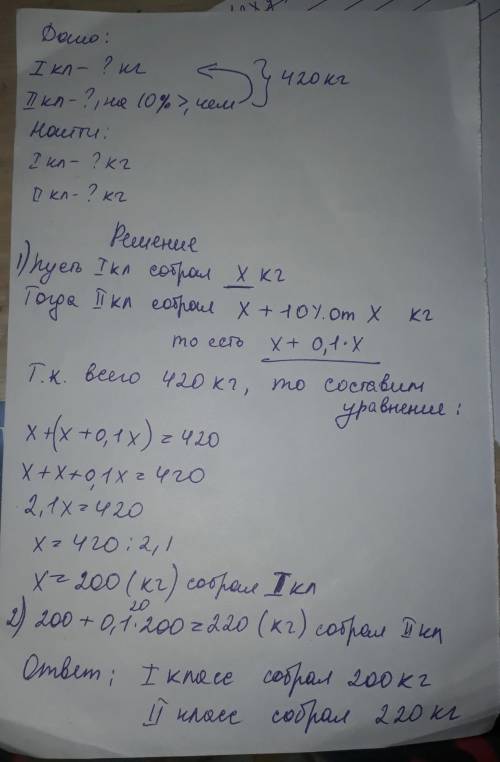 Дано:
I кл - ? кг
II кл - ?, на 10% >, чем } 420 кг
Найти:
I кл - ? кг
II кл - ? кг
Решение
1) Пусть I кл собрал x кг
Тогда II кл собрал x + 10% от x кг
то есть x + 0,1·x
Т.к. всего 420 кг, то составим
уравнение:
x+(x+0,1x)=420
x+x+0,1x=420
2,1x=420
x=420:2,1
x=200 (кг) собрал I кл
20
2) 200+0,1·200=220 (кг) собрал II кл
Ответ; I класс собрал 200 кг
II класс собрал 220 кг